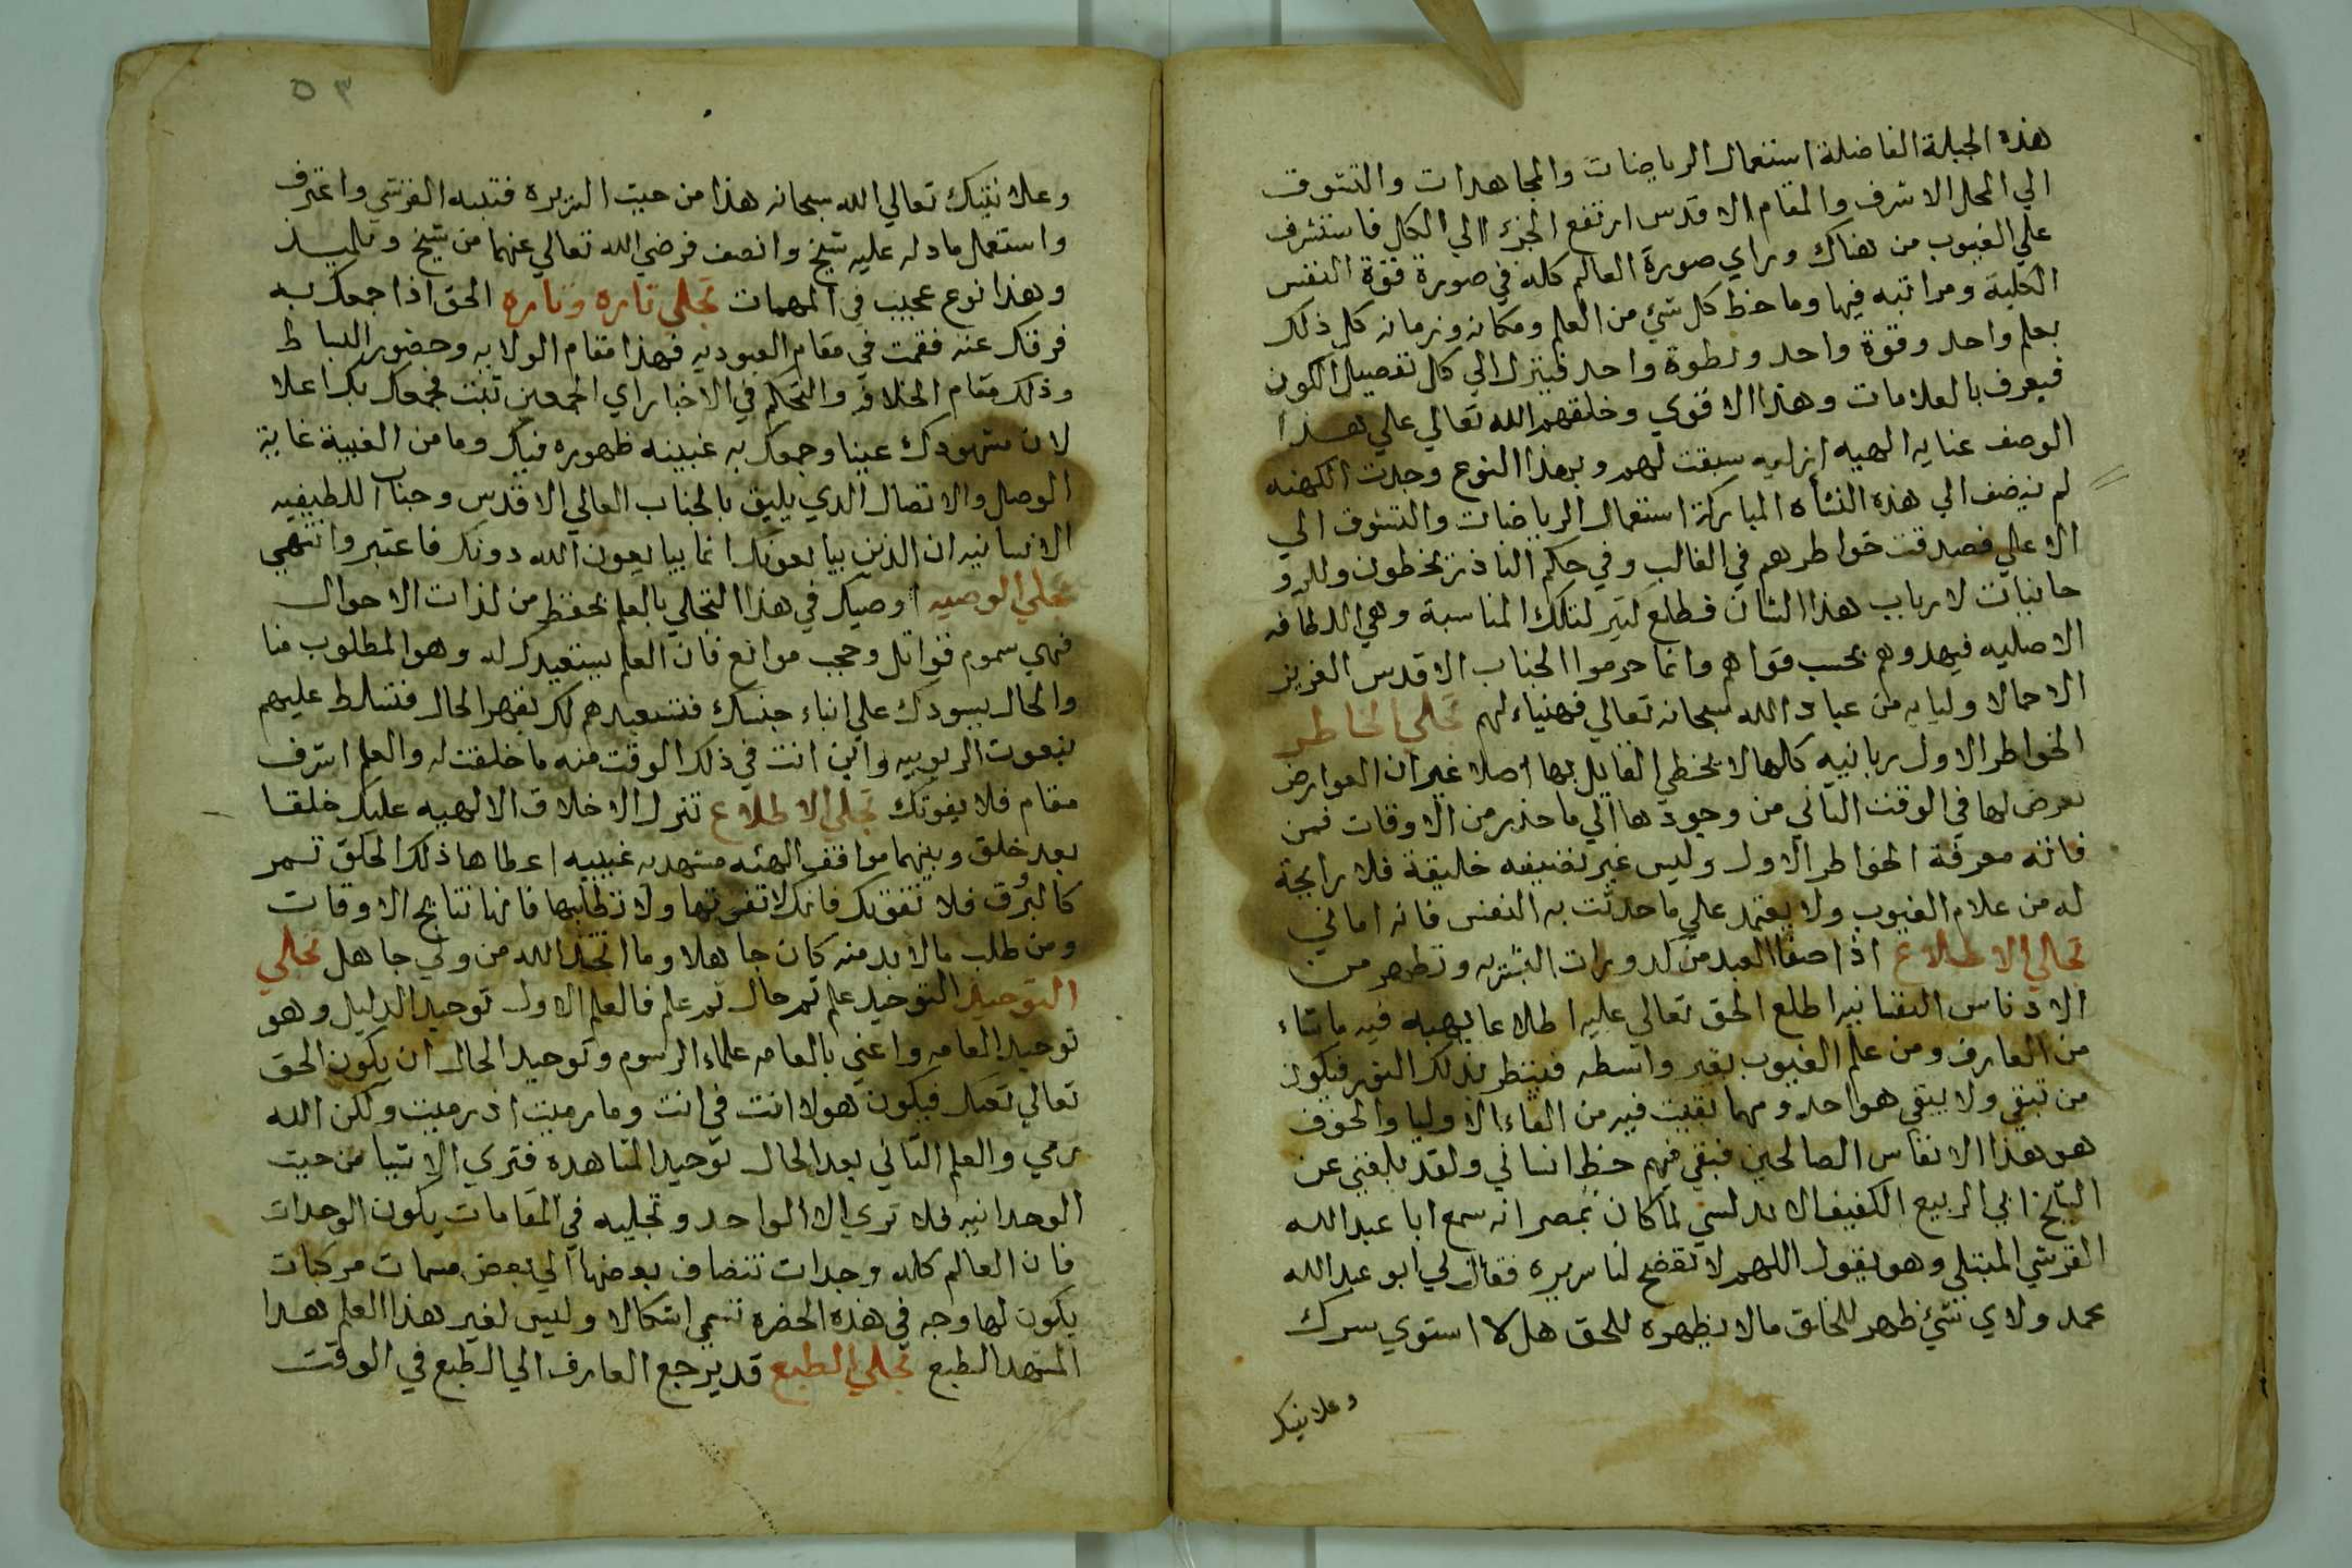 هذه الجبلة الفاضلة استعمال الرياضات والمجاهدات والتشوق
الي المحل الاشرف والمقام الاقدس ارتفع الجزء الي الكل فاستشرف
علي الغيوب من هناك وراي صورة العالم كله في صورة قوة النفس
الكلية ومراتبه فيها وما حظ كل شيء من العلم ومكانه وزمانه كل ذلك
بعلم واحد وقوة واحد ونظوة واحد فينزل الي كل تفصيل الكون
فيعرف بالعلامات وهذا الاقوي وخلقهم الله تعالي علي هذا
الوصف عنايه الهيه ازليه سبقت لهم وبهذا النوع وجدت الكهنه
لم ينضف الي هذه النشأه المباركة استعمال الرياضات والتشوق الي
الاعلي فصدقت خواطرهم في الغالب وفي حكم النادر يخطون وللرو
حانيات لارباب هذا الشان تطلع لتلك المناسبة وهي اللطافه
الاصليه فيهدوهم بحسب قواهم وانما حرموا الجناب الاقدس العزيز
الاحمالا ولياه من عباد الله سبحانه تعالي فهنياء لهم تجلي الخاطر
الخواطر الاول ربانيه كلها لا يخطي القايل بها اصلا غير ان العوارض
تعرض لها في الوقت الثاني من وجودها الي ما حذر من الاوقات فمن
فاته معرفة الخواطر الاول وليس غير تصنيفه خليقة فلا رايحة
له من علام الغيوب ولا يعتمد علي ما حدثت به النفس فانه اماني
تجلي الاطلاع اذا صفا العبد من كدورات البشريه وتطهر من
الادناس النفسانيه اطلع الحق تعالي عليه اطلاعا يهبه فيه ما شاء
من العارف ومن علم الغيوب بغير واسطه فينظر بذلك النور فيكون
من تبقي ولا يبقي هو احد ومهما بقيت فيه من القاء الاوليا والخوف
هو هذا الانفاس الصالحين فبقي فيهم حظ انساني ولقد بلغني عن
الشيخ ابي الربيع الكفيف الاندلسي لما كان بمصر انه سمع ابا عبد الله
القرشي المبتلي وهو يقول اللهم لا تفضح لنا سريره فقال لي ابو عبد الله
محمد ولاي شيء ظهر للخلق مالا يظهره للحق هلا استوي سرك
وعلانيتك
٥٣
وعلانيتك تعالي الله سبحانه هذا من حيث التزيره فتنبه القرشي واعترف
واستعمل ما دله عليه شيخ وانصف فرضي الله تعالي عنهما من شيخ وتلميذ
وهذا نوع عجيب في المهمات تجلي تاره وتاره الحق اذا جمعك به
فرقك عنه فقمت في مقام العبوديه فهذا مقام الولايه وحضور البساط
وذلك مقام الخلافه والتحكم في الاخبار اي الجمعين تبت فجمعك بك اعلا
لان مشهودك عينا وجمعك به غيبته ظهوره فيك وما من الغيبة غاية
الوصل والاتصال الذي يليق بالجناب العالي الاقدس وجناب اللطيفيه
الانسانيه ان الذين يبايعونك انما يبايعون الله دونك فاعتبر وانتهي
تجلي الوصيه اوصيك في هذا التجلي بالعلم تحفظ من لذات الاحوال
فهي سموم قواتل وحجب موانع فان العلم يستعبدك له وهو المطلوب منا
والحال يسودك علي ابناء جنسك فتستعبدهم لك بقهر الحال فتسلط عليهم
بنعوت الربوبيه واين انت في ذلك الوقت منه ما خلقت له والعلم اشرف
مقام فلا يفوتك تجلي الاطلاع تنزل الاخلاق الالهيه عليك خلقا
بعد خلق وبينهما مواقف الهيه مشهديه غيبيه اعطاها ذلك الخلق تمر
كالبرق فلا تفوتك فانك لا تفوتها ولا تطلبها فانها نتايج الاوقات
ومن طلب مالا بد منه كان جاهلا وما اتخذ الله من ولي جاهل تجلي
التوحيد التوحيد علم ثم حال ثم علم فالعلم الاول توحيد الدليل وهو
توحيد العامه واعني بالعامه علماء الرسوم وتوحيد الحال ان يكون الحق
تعالي نعتك فيكون هو لا انت في انت وما رميت اذ رميت ولكن الله
رمي والعلم الثاني بعد الحال توحيد المشاهده فتري الاشيا من حيث
الوحدانيه فلا تري الا الواحد وتجليه في المقامات يكون الوحدات
فان العالم كله وحدات تنضاف بعضها الي بعض مسمات مركبات
يكون لها وجه في هذه الحضره تسمي اشكالا وليس لغير هذا العلم هذا
المشهد الطبع تجلي الطبع قد يرجع العارف الي الطبع في الوقت